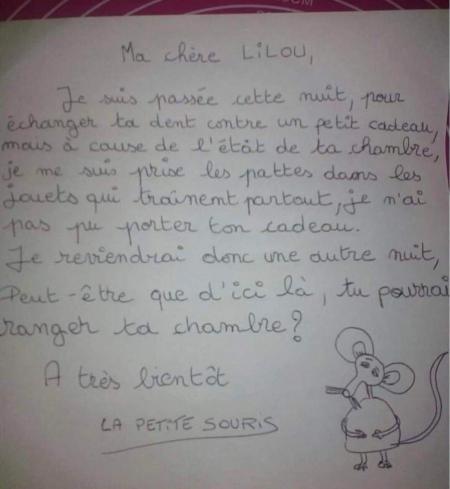 Ma chère LiLOU,
Je suis passée cette nuit, pour
échanger ta dent contre un petit cadeau,
mais à cause de l'étât de ta chambre,
je me suis prise les pattes dans les
jouets qui traînemt partout, je n'ai
pas pu porter ton cadeau.
Je reviendrai donc une autre nuit,
Peut-être que d'ici là, tu pourrai
ranger ta chambre?
A très bientôt
LA PETITE SOURIS